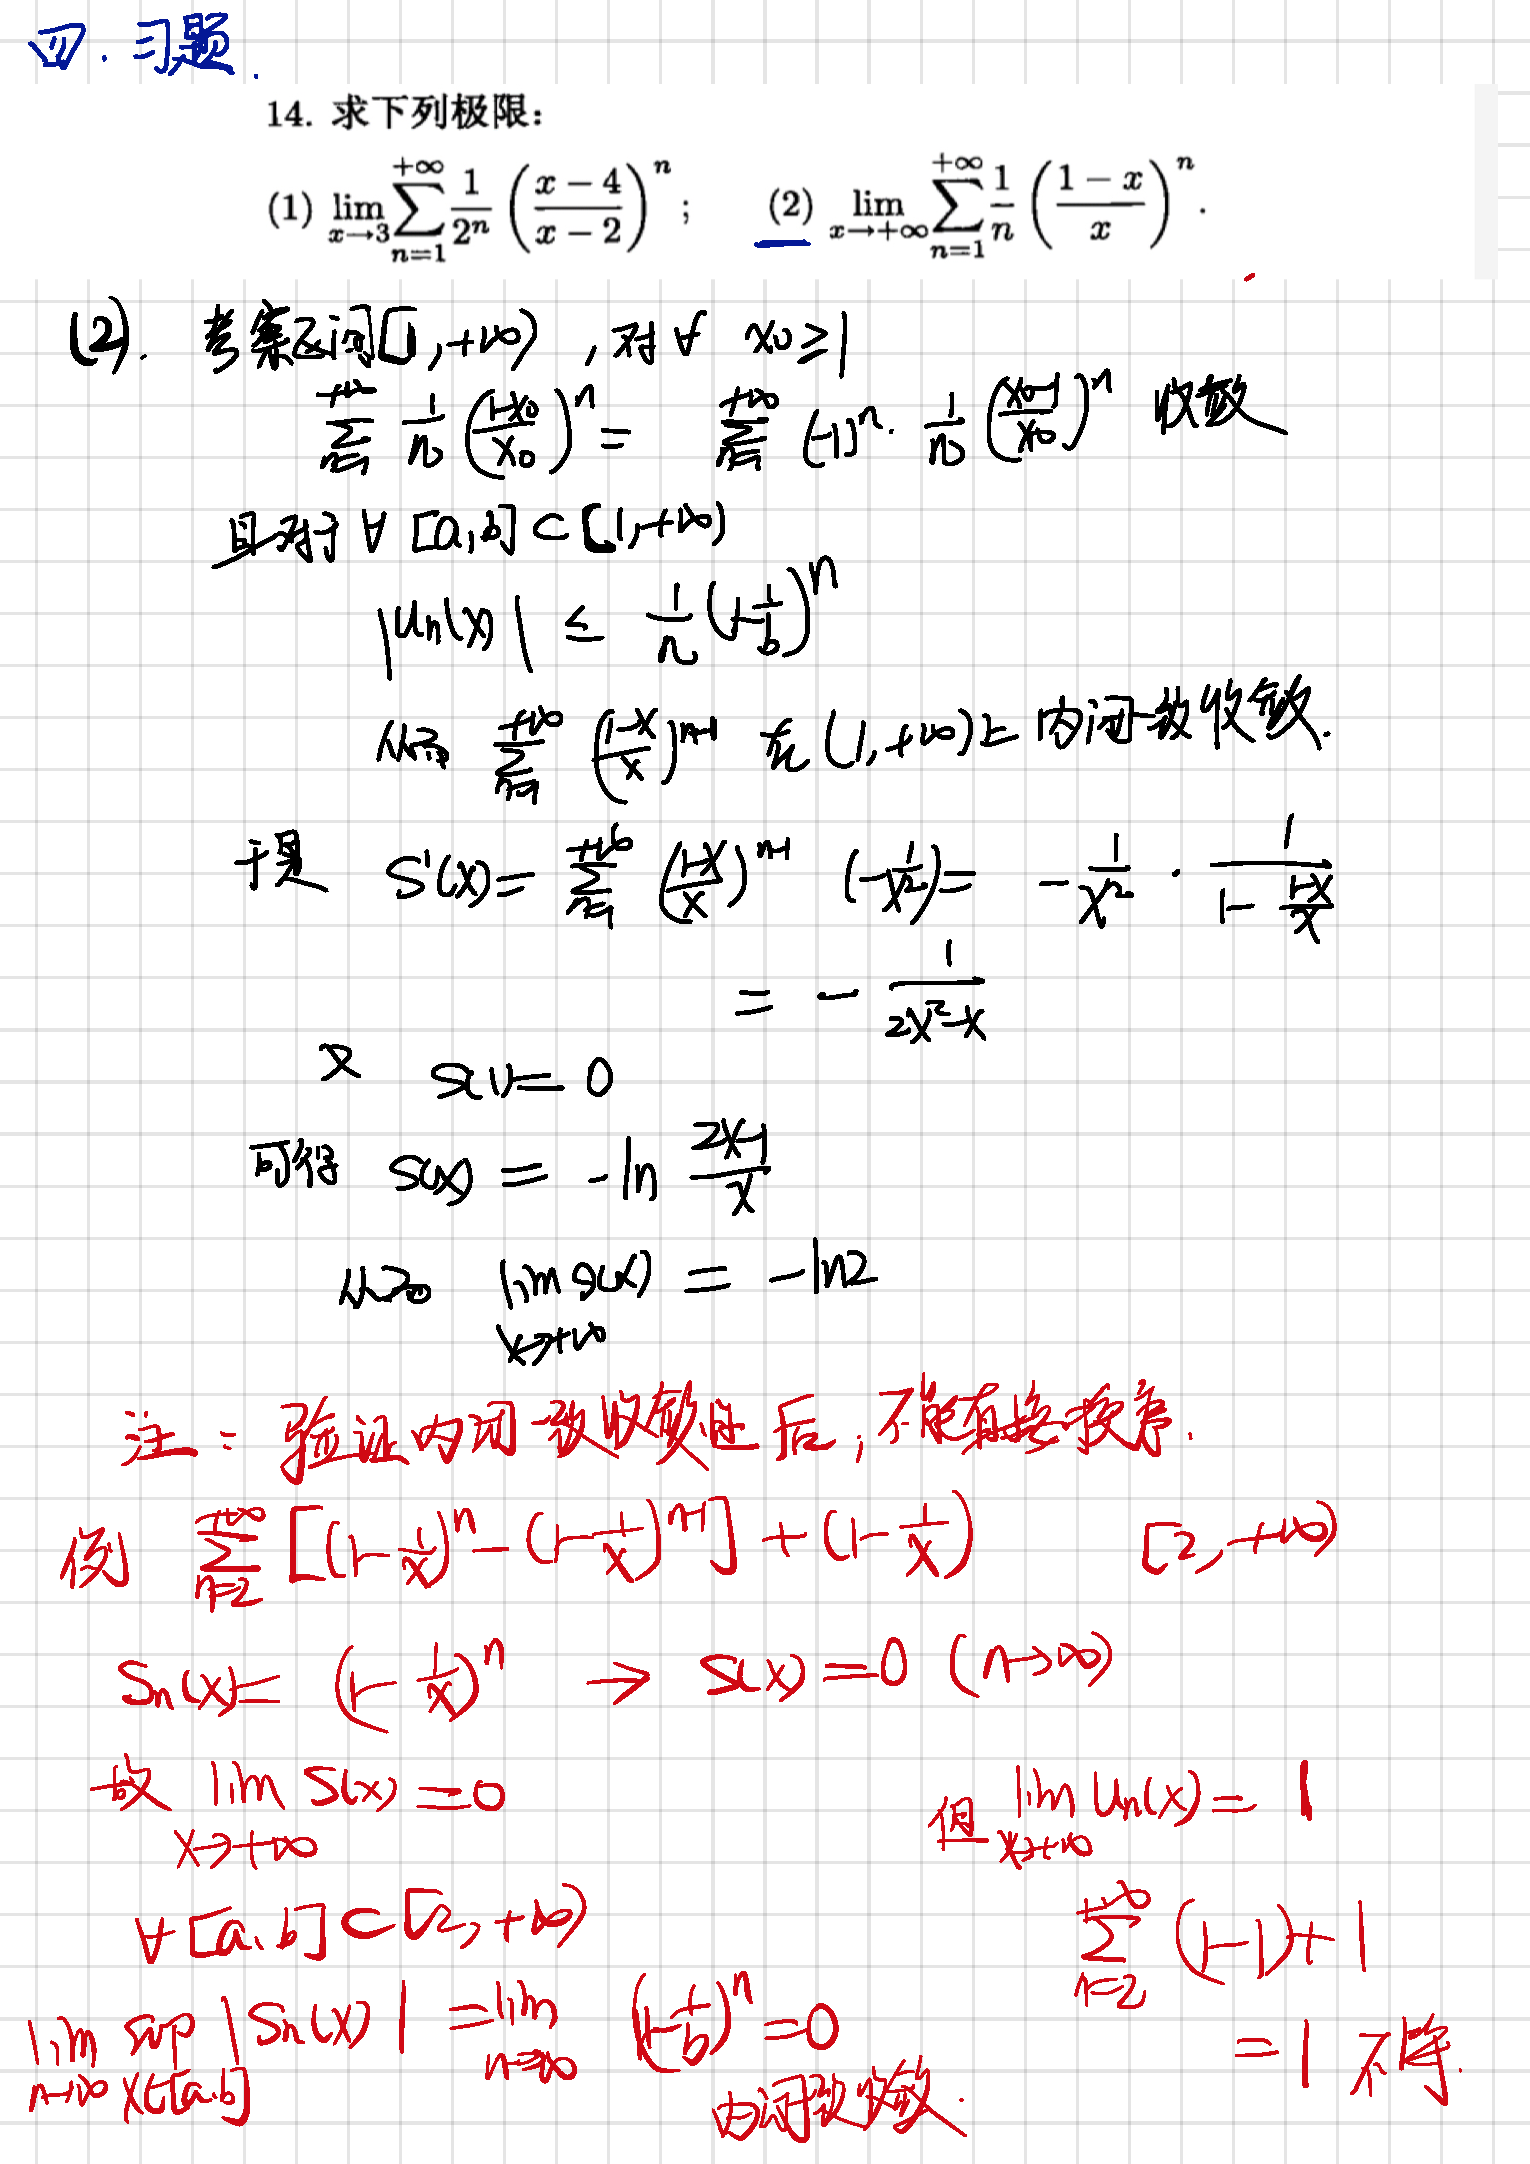 四. 习题.
14. 求下列极限:
(1) lim_{x→3} ∑_{n=1}^{+∞} \frac{1}{2^n} (\frac{x-4}{x-2})^n ; (2) lim_{x→+∞} ∑_{n=1}^{+∞} \frac{1}{n} (\frac{1-x}{x})^n .
(2). 考察区间[1,+∞) , 对∀ x_0≥1
∑_{n=1}^{+∞} \frac{1}{n} (\frac{1-x_0}{x_0})^n = ∑_{n=1}^{+∞} (-1)^n · \frac{1}{n} (\frac{x_0-1}{x_0})^n 收敛
且对于 ∀ [a,b] ⊂ [1,+∞)
|U_n(x)| ≤ \frac{1}{n} (1-\frac{1}{b})^n
从而 ∑_{n=1}^{+∞} (\frac{1-x}{x})^{n-1} 在 (1,+∞)上 内闭一致收敛.
于是 S'(x) = ∑_{n=1}^{+∞} (\frac{1-x}{x})^{n-1} (-\frac{1}{x^2}) = -\frac{1}{x^2} · \frac{1}{1-\frac{1-x}{x}}
= -\frac{1}{2x^2-x}
又 S(1)= 0
可得 S(x) = -ln \frac{2x-1}{x}
从而 lim_{x→+∞} S(x) = -ln2
注: 验证内闭一致收敛性后, 不能直接换序.
例 ∑_{n=2}^{+∞} [(1-\frac{1}{x})^n - (1-\frac{1}{x})^{n-1}] + (1-\frac{1}{x}) [2,+∞)
S_n(x)= (1-\frac{1}{x})^n → S(x)=0 (n→∞)
故 lim_{x→+∞} S(x) =0
但 lim_{x→+∞} U_n(x) = 1
∀ [a,b] ⊂ [2,+∞)
∑_{n=2}^{+∞} (1-1)+1
lim_{n→∞} sup_{x∈[a,b]} |S_n(x)| = lim_{n→∞} (1-\frac{1}{b})^n =0
=1 不等.
内闭一致收敛.